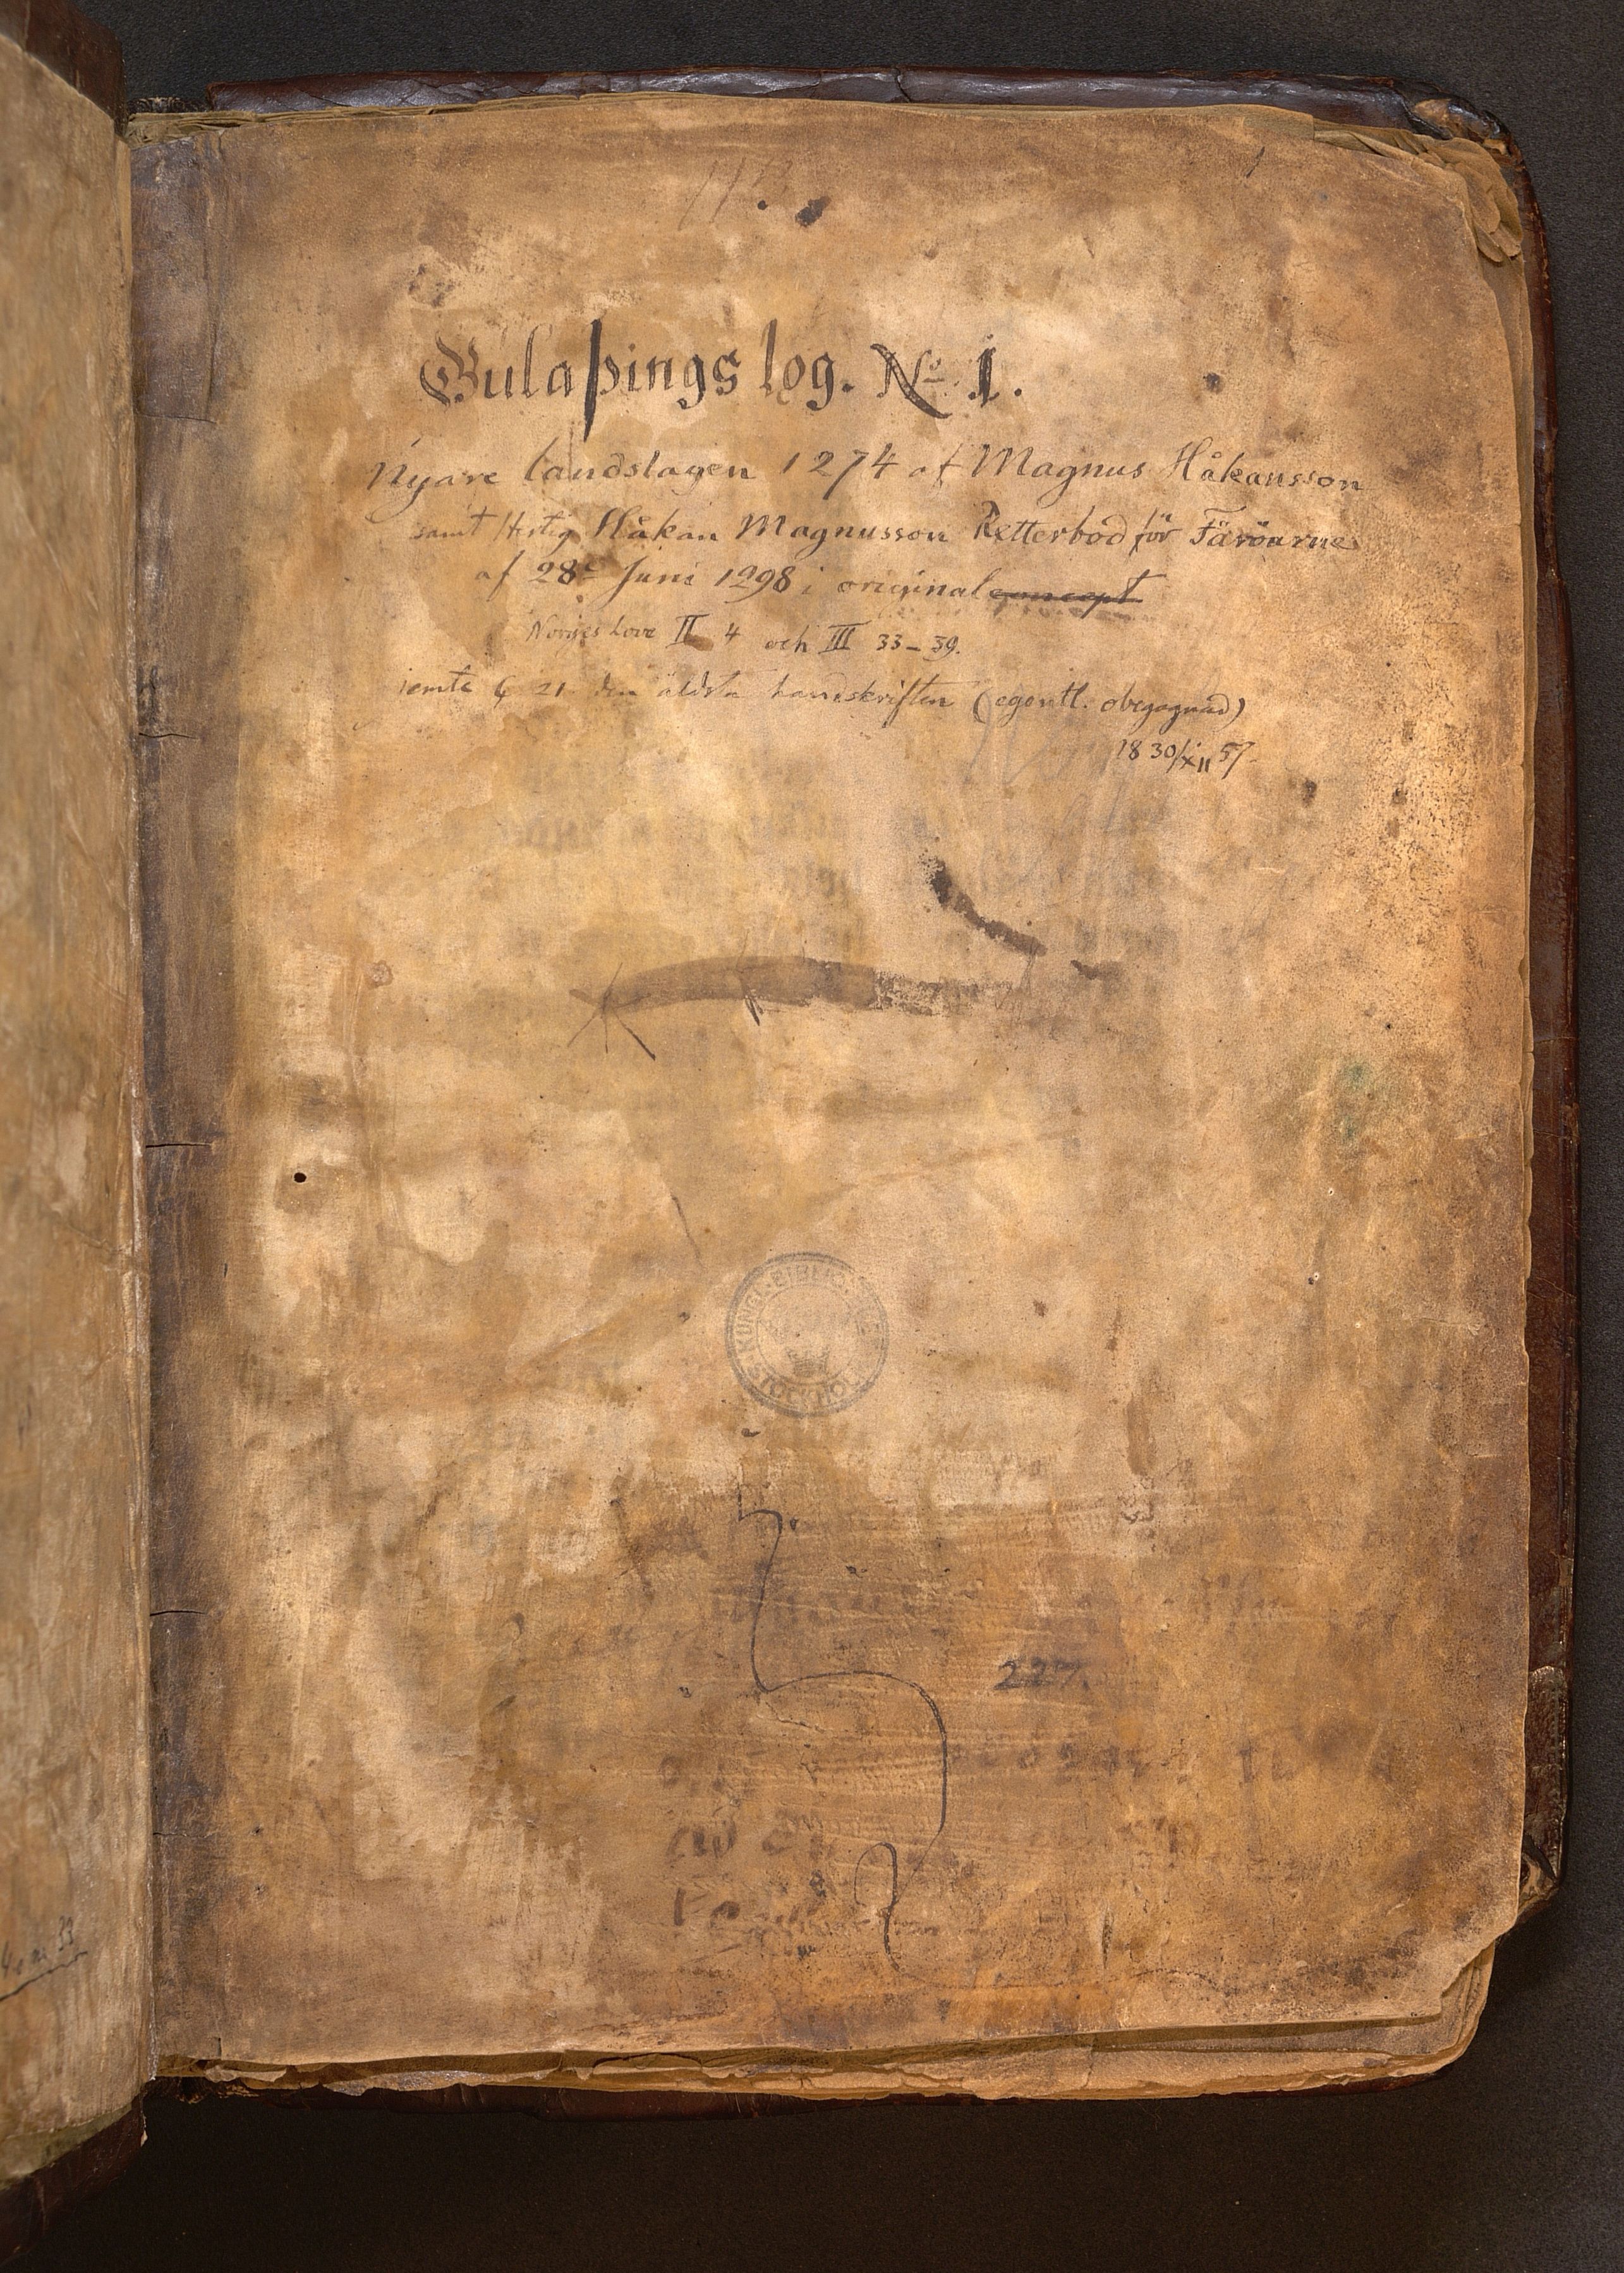 1
Gulaþings log. No 1.
Nyare landslagen 1274 af Magnus Håkansson
samt Hertig Håkan Magnusson Retterbod för Färöarne
af 28e Juni 1298 i originalconcept
Norges Love II 4 och III 33-39.
jemte C 21 den äldsta handskriften (egentl. obegagnad)
18 30/XII 57.
KUNGL. BIBLIOTEKET
STOCKHOLM
227.
33